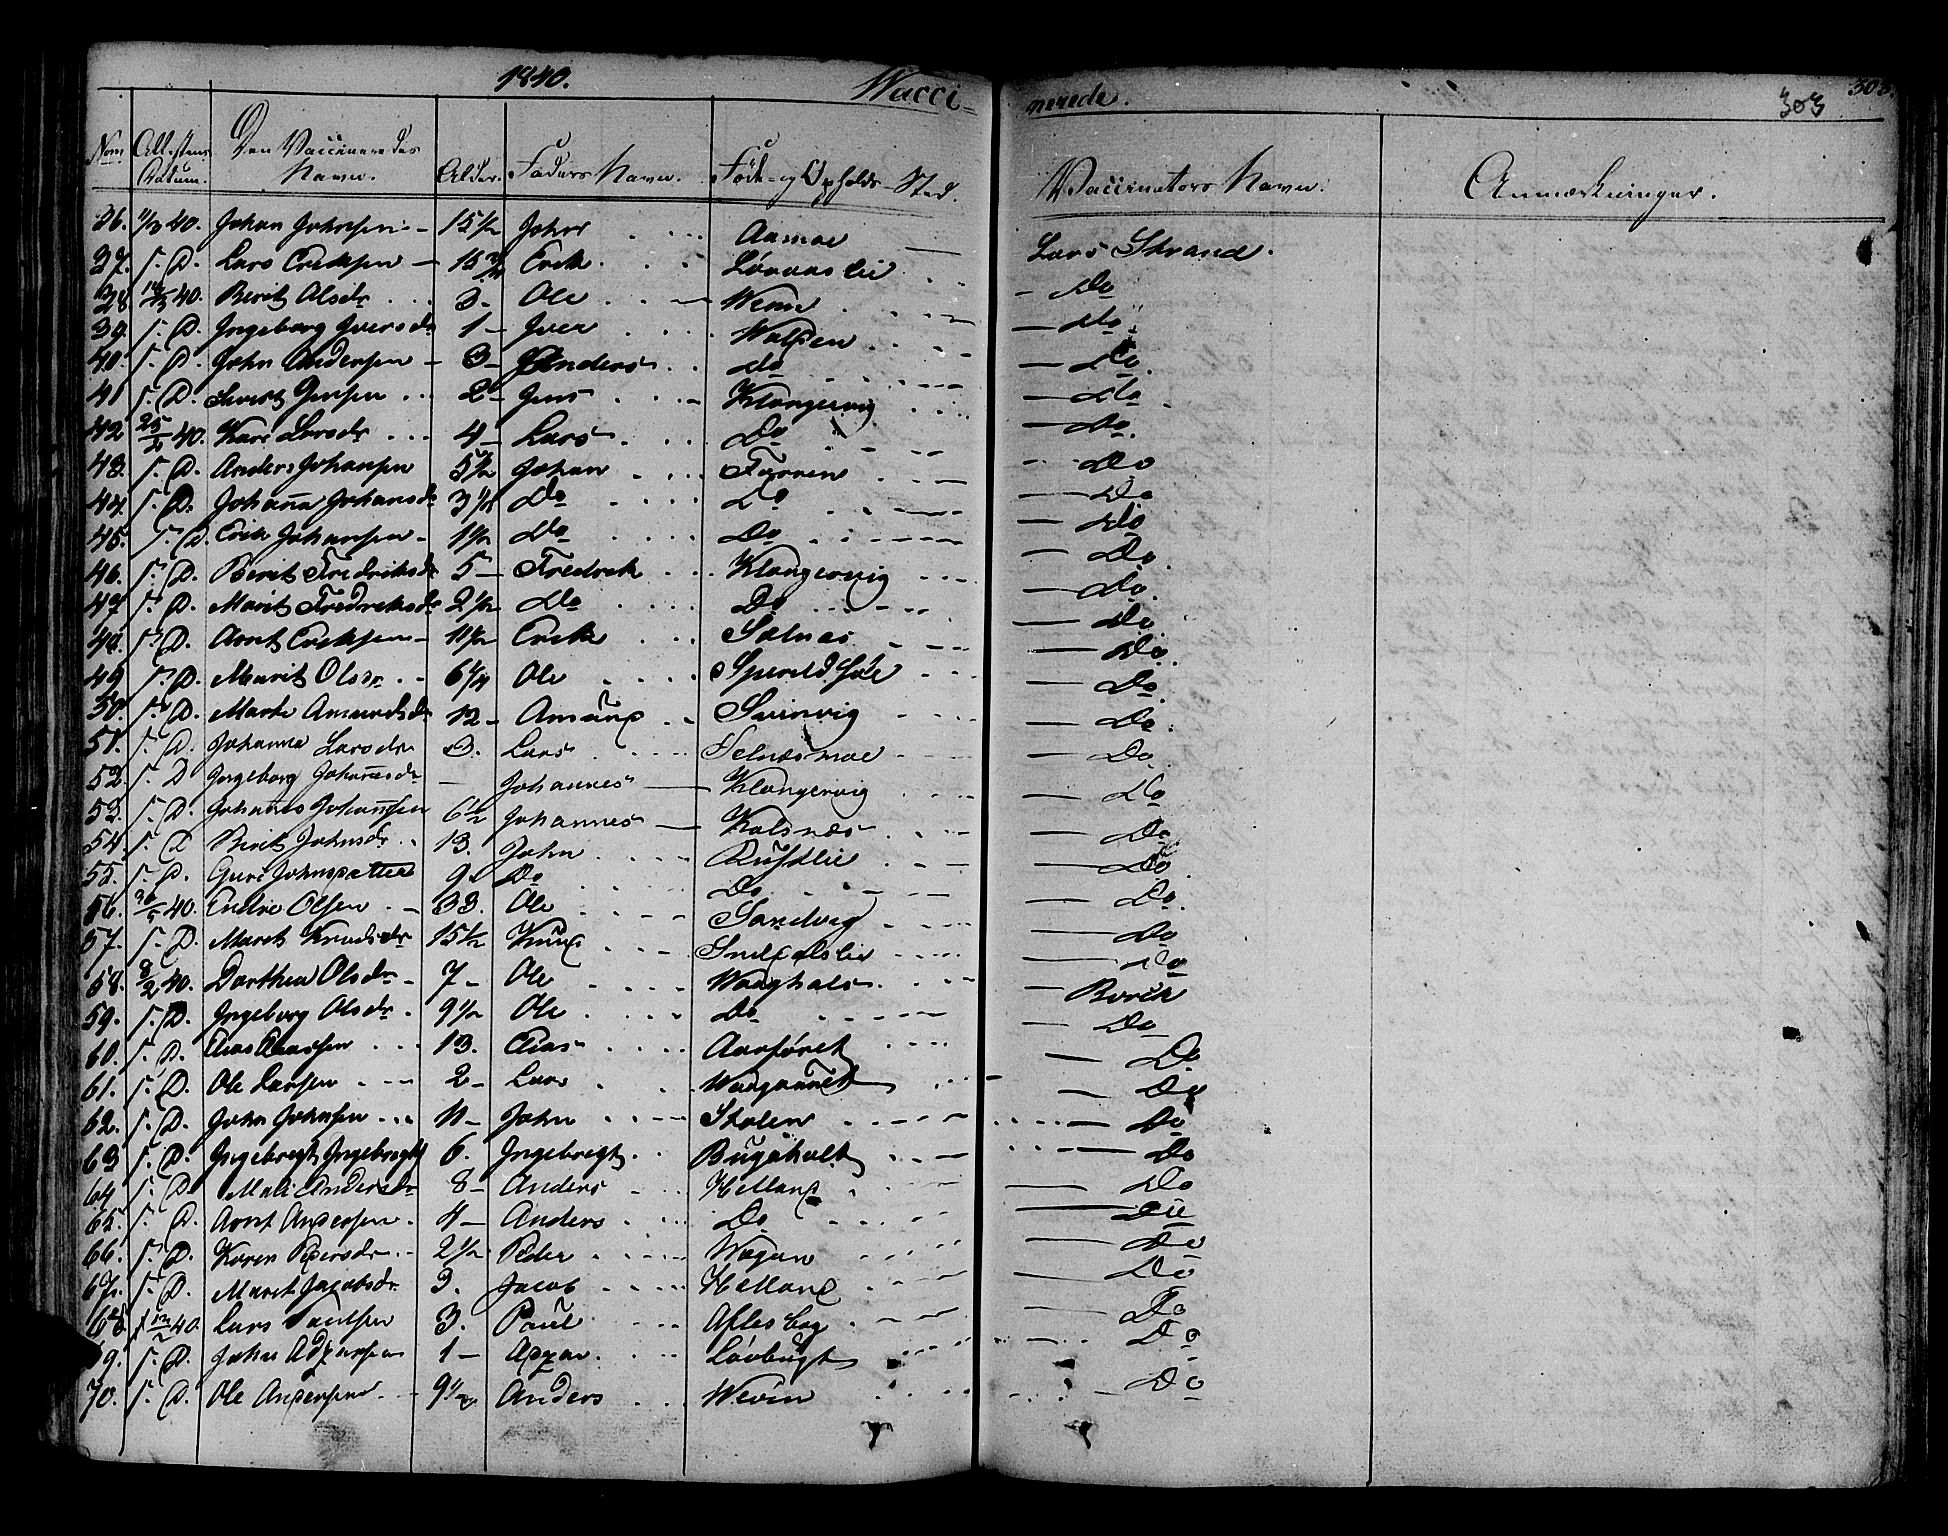 1840. Wacci- nerede. 303 303.
Nom Attestens Datum. Den Vaccineredes Navn. Alder. Faders Navn. Føde- og Opholds-Sted. Vaccinators Navn. Anmærkninger.
36. 11/3 40. Johan Johnsen 15 1/2 John Aamoe Lars Strand.
37. s. D. Lars Eriksen Erik Do
38 40. Berit Olsdr 3. Ole Do
39. s. D. Ingeborg Iversdr 1 Iver Do
40. s. D. John Andersen 3 Anders do Do
41 s. D. Sivert Jensen 2 Jens Klongervig Do
42 25/2 40. Kari Larsdr 4 Lars Do Do
43. s. D. Anders Johansen 5 1/2 Johan Do
44. s. D. Johana Johansdr Do Do Do
45. s. D. Erik Johansen 1 1/2 Do Do Do
46. s. D. Berit Fredriksdr 5 Fredrek Klongervig Do
47 s. D. Marit Fredreksdr 2 1/2 Do Do Do
48. s. D. Arnt Eriksen 11 1/2 Erik Selnæs Do
49 s. D. Marit Olsdr 6 1/4 Ole Do
50. s. D. Marte Amundsdr 12 Amund Svinvig Do
51. s. D. Johanna Larsdr 3. Lars Selnæsmoe Do
52. s. D Ingeborg Johanesdr Johannes Klongervig Do
53. s. D. Johanes Johansen 6 1/2 Johannes Kalsnæs Do
54 s. D Berit Johnsdr 13. John Rustlie Do
55. s. D. Guri Johnsdatter 9 Do Do Do
56. 26/5 40. Endre Olsen 33. Ole Sandvig Do
57. s. D. Marit Knudsdr 15 1/2 Knud Do
58. 8/2 40. Dorthea Olsdr 7 Ole Waaghals Borch
59. s. D. Ingeborg Olsdr 9 1/2 Ole Do Do
60. s. D. Elias Eliassen 13. Elias Aarføret Do
61. s. D. Ole Larsen 2 Lars Do
62. s. D. John Johnsen 11 John Stolen Do
63 s. D. Ingebregt Ingebregts 6. Ingebregt Bugeholt Do
64 s. D Mali Andersdr 8 Anders Helland Do
65. s. D. Arnt Andersen 4 Anders Do Do
66. s. D. Karen Pedersdr 2 1/2 Peder Wogan Do
67. s. D. Marit Jacobsdr Jacob Helland Do
68 12/2 40. Lars Paulsen 3. Paul Do
69. s. D. John 1 Løvbugt Do
70. s. D. Ole Andersen 9 1/2 Anders Do